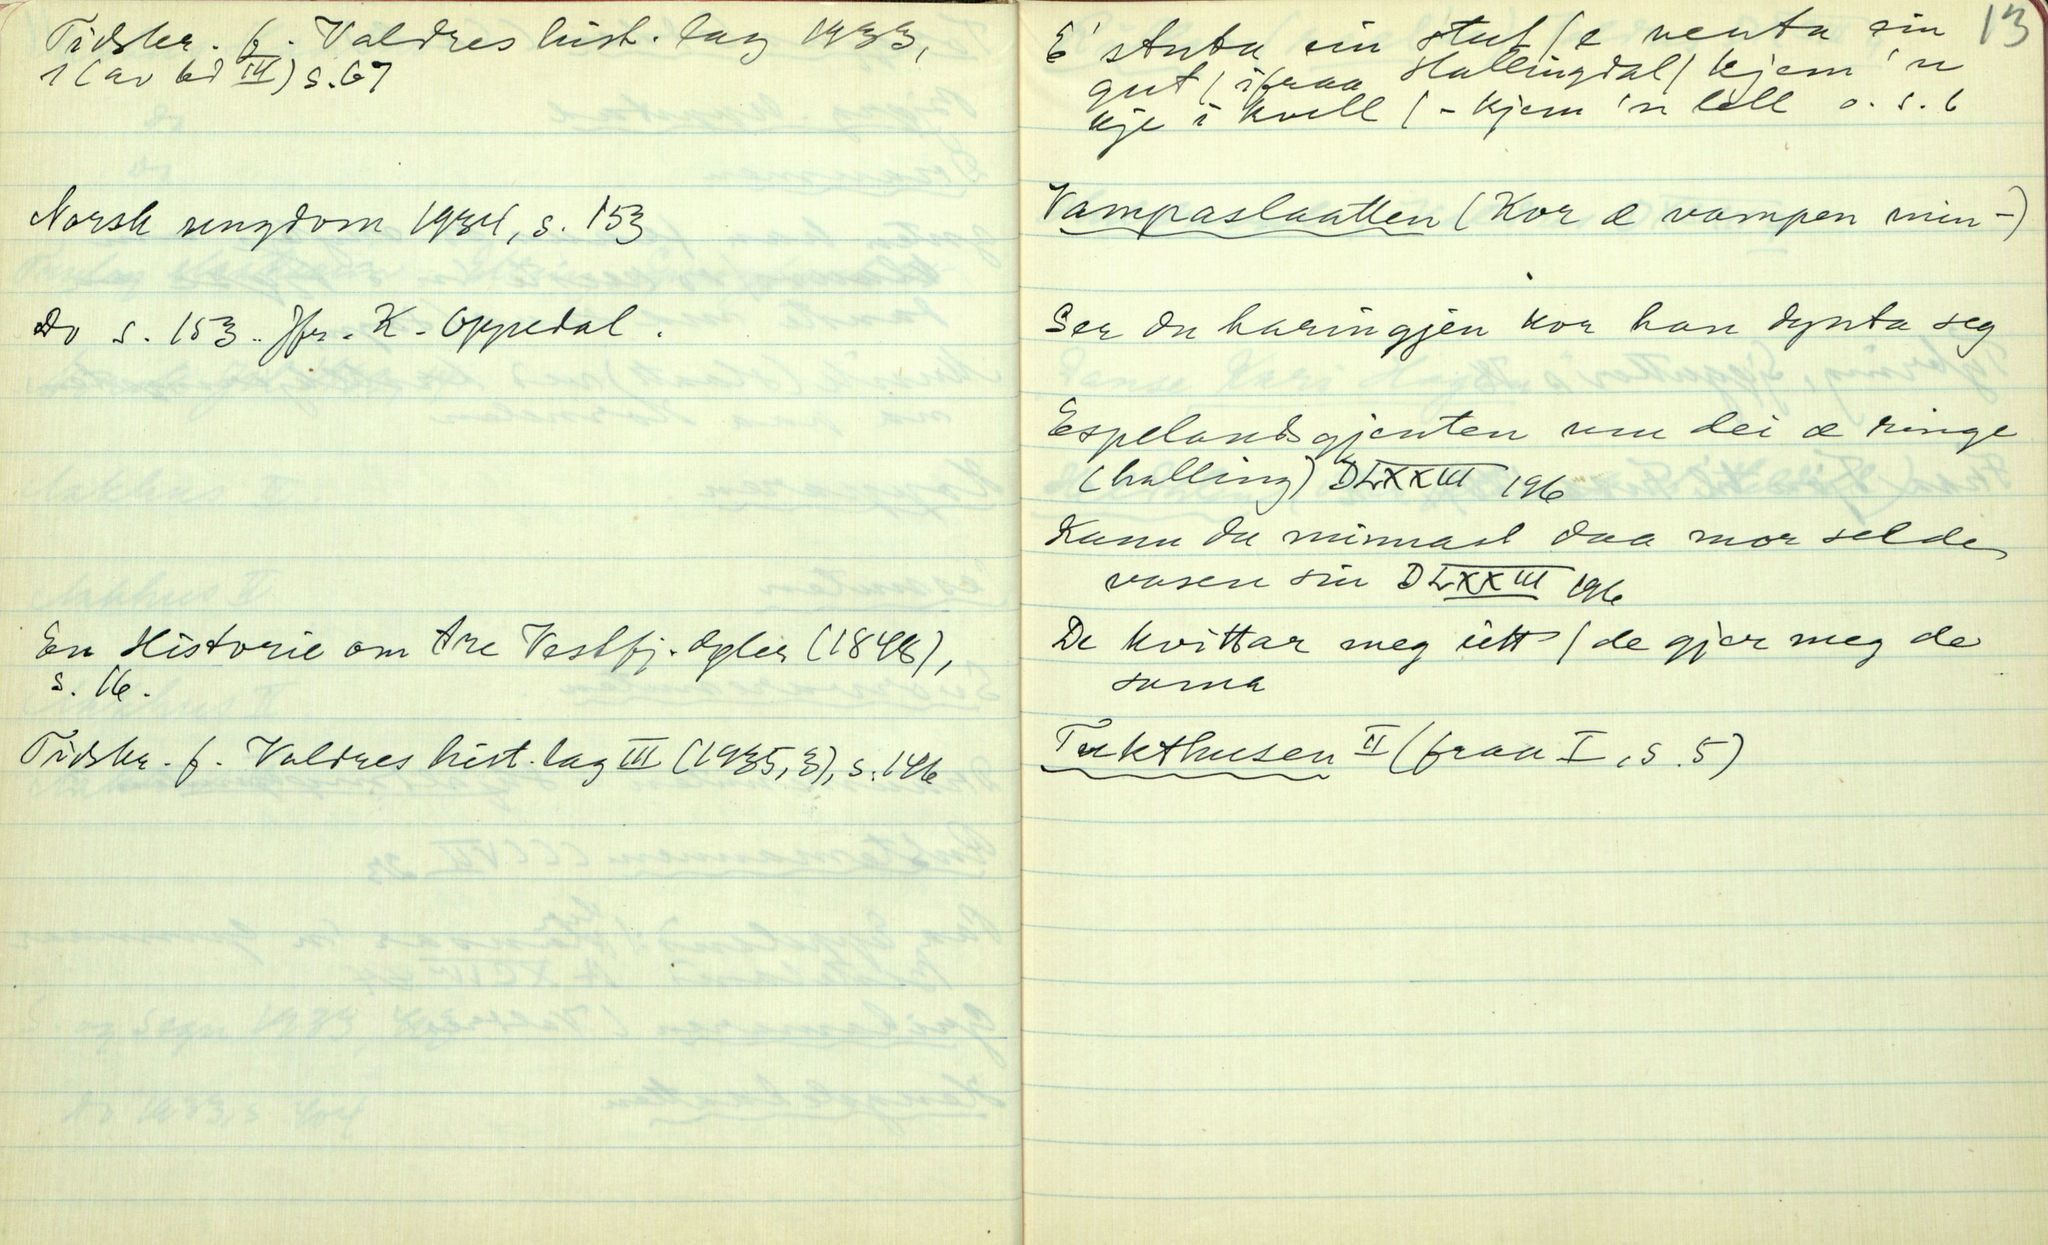 Tidskr. f. Valdres hist. lag 1933,
1 (av bd III) s. 67
Norsk ungdom 1934, s. 153
Do s. 153. Jfr. K. Oppedal.
En Historie om Are Vestfj. døler (1848),
s. 16.
Tidskr. f. Valdres hist. lag III (1935, 3), s. 146
13
E stuta ein stut / e venta ein
gut / ifraa Hallingdal / kjem 'n
kje i kvell / - kjem 'n lell o. s. b
Vampaslaatten (Kor æ vampen min -)
Ser du haringjen kor han dynta seg
Espelandsgjenten um dei æ ringe
(halling) DLXXIII 196
Kann du minnast daa mor selde
vasen sin DLXXIII 196
De kvittar meg itt / de gjer meg de
sama
Tukthusen II (fraa I, s. 5)